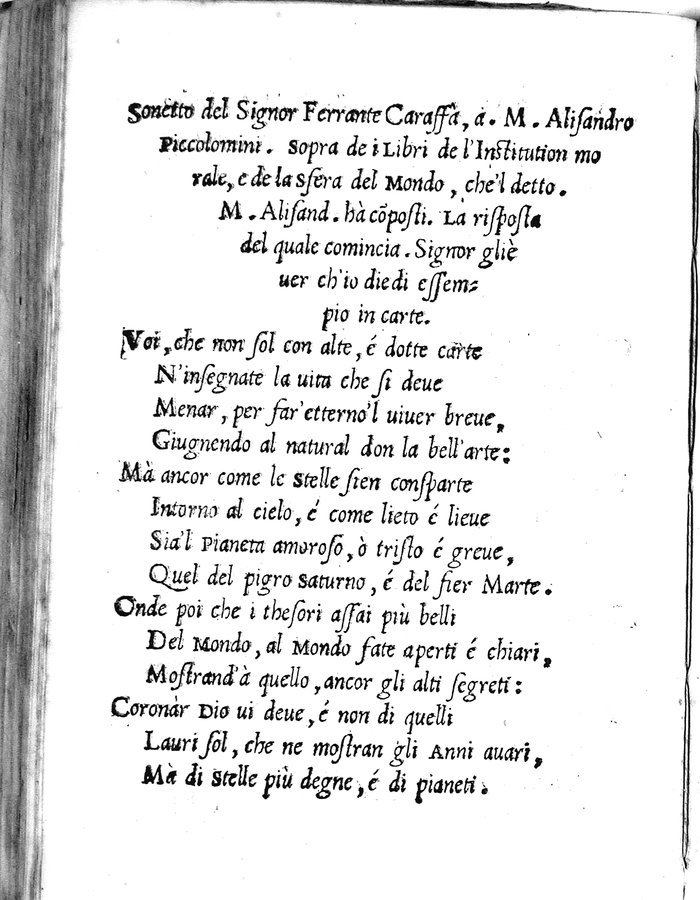 Sonetto del Signor Ferrante Caraffa, a. M. Aliſandro
Piccolomini. Sopra de i Libri de l'Inſtitution mo
rale, e de la Sfera del Mondo, che'l detto.
M. Aliſand. hà cõpoſti. La riſpoſta
del quale comincia. Signor gliè
uer ch'io diedi eſſem⸗
pio in carte.
Voi, che non ſol con alte, é dotte carte
N'inſegnate la uita che ſi deue
Menar, per far'etterno'l uiuer breue,
Giugnendo al natural don la bell'arte:
Mà ancor come le Stelle ſien conſparte
Intorno al cielo, é come lieto é lieue
Sia'l Pianeta amoroſo, ò triſto é greue,
Quel del pigro Saturno, é del fier Marte.
Onde poi che i theſori aſſai più belli
Del Mondo, al Mondo fate aperti é chiari,
Moſtrand'à quello, ancor gli alti ſegreti:
Coronàr Dio ui deue, é non di quelli
Lauri ſol, che ne moſtran gli Anni auari,
Mà di Stelle più degne, é di pianeti.